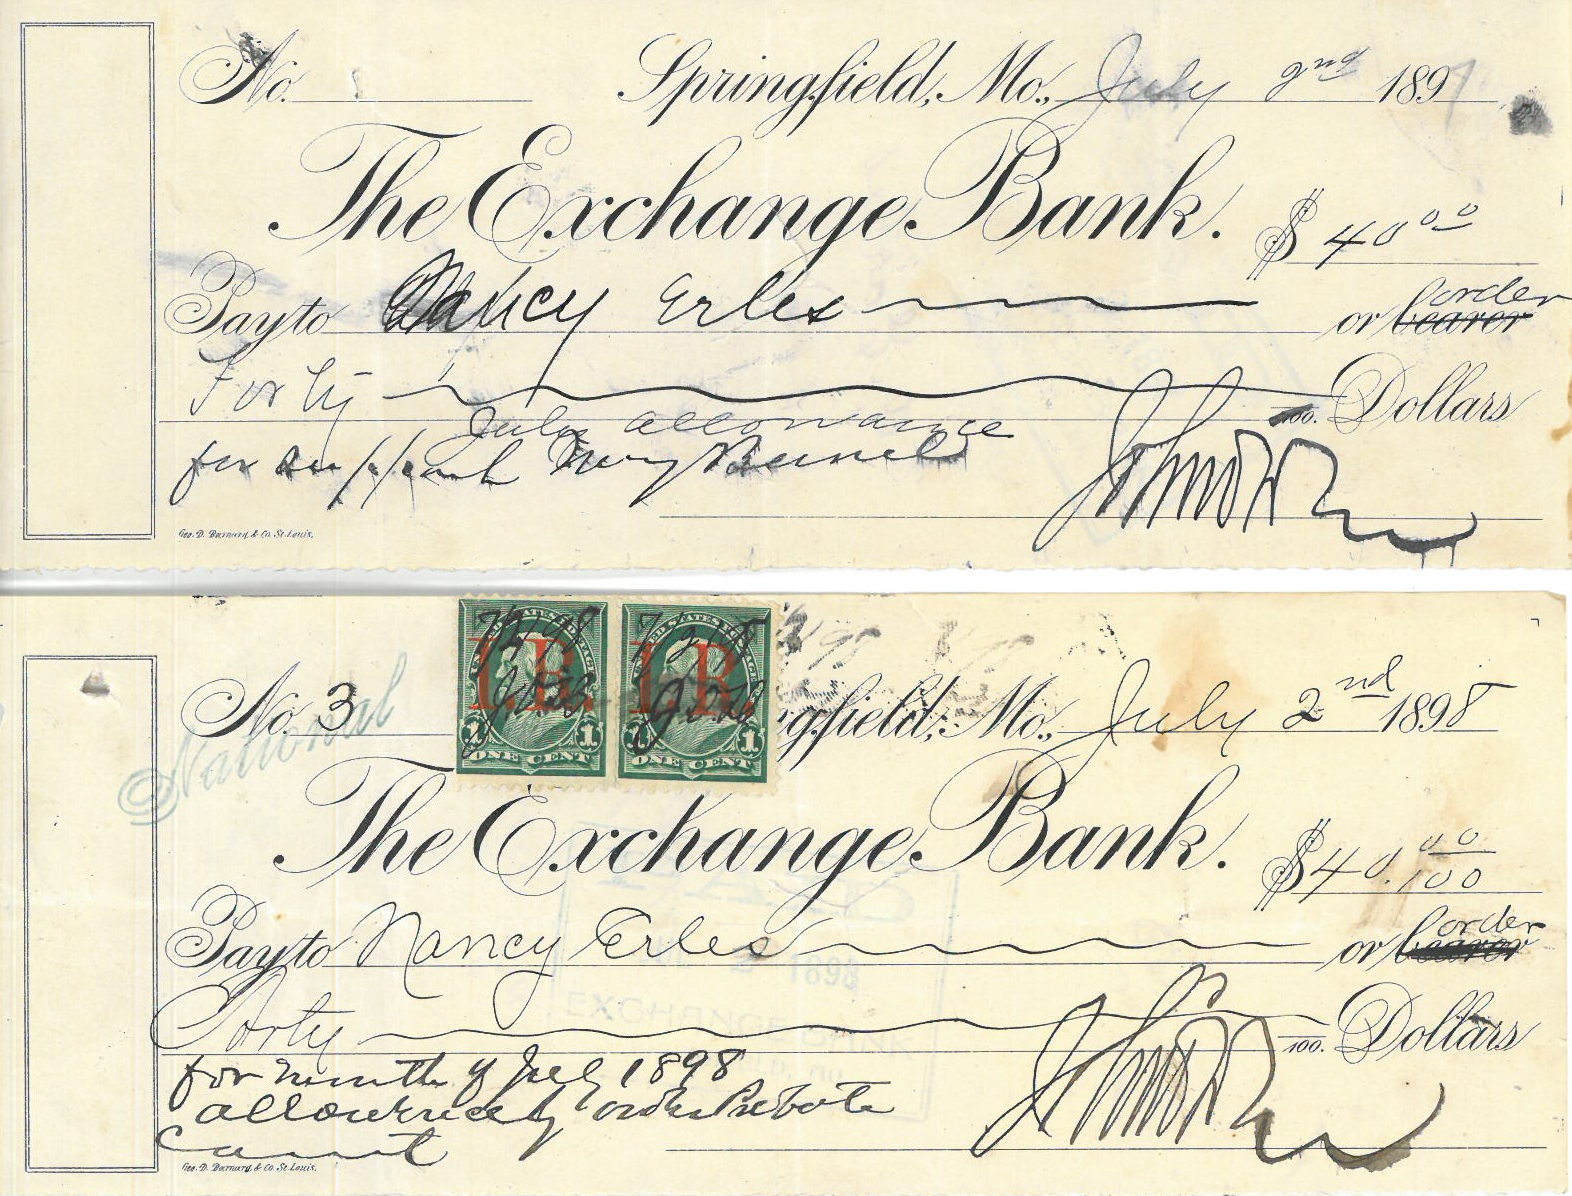 No. Springfield, Mo., July 2nd 1897
The Exchange Bank. $ 40 00
Pay to Nancy Erles or bearer order
Forty 100. Dollars
July allowance
for support Mary
Geo. D. Barnard & Co. St. Louis.
7/2/98 7/2/98
UNITED STATES POSTAGE UNITED STATES POSTAGE
I.R. I.R.
1 1 1 1
ONE CENT ONE CENT
No. 3 gfield, Mo., July 2nd 1898
National
The Exchange Bank. $ 40. 00/100
Pay to Nancy Erles or bearer order
1898
Forty 100. Dollars
for month of July 1898
allowance by order Probate
Court
Geo. D. Barnard & Co. St. Louis.